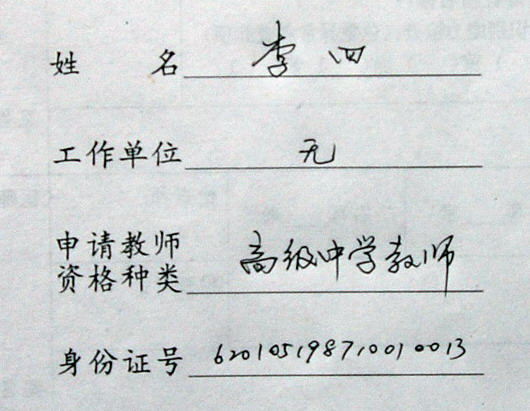 姓 名 李四
工作单位 无
申请教师
资格种类 高级中学教师
身份证号 620105198710010013